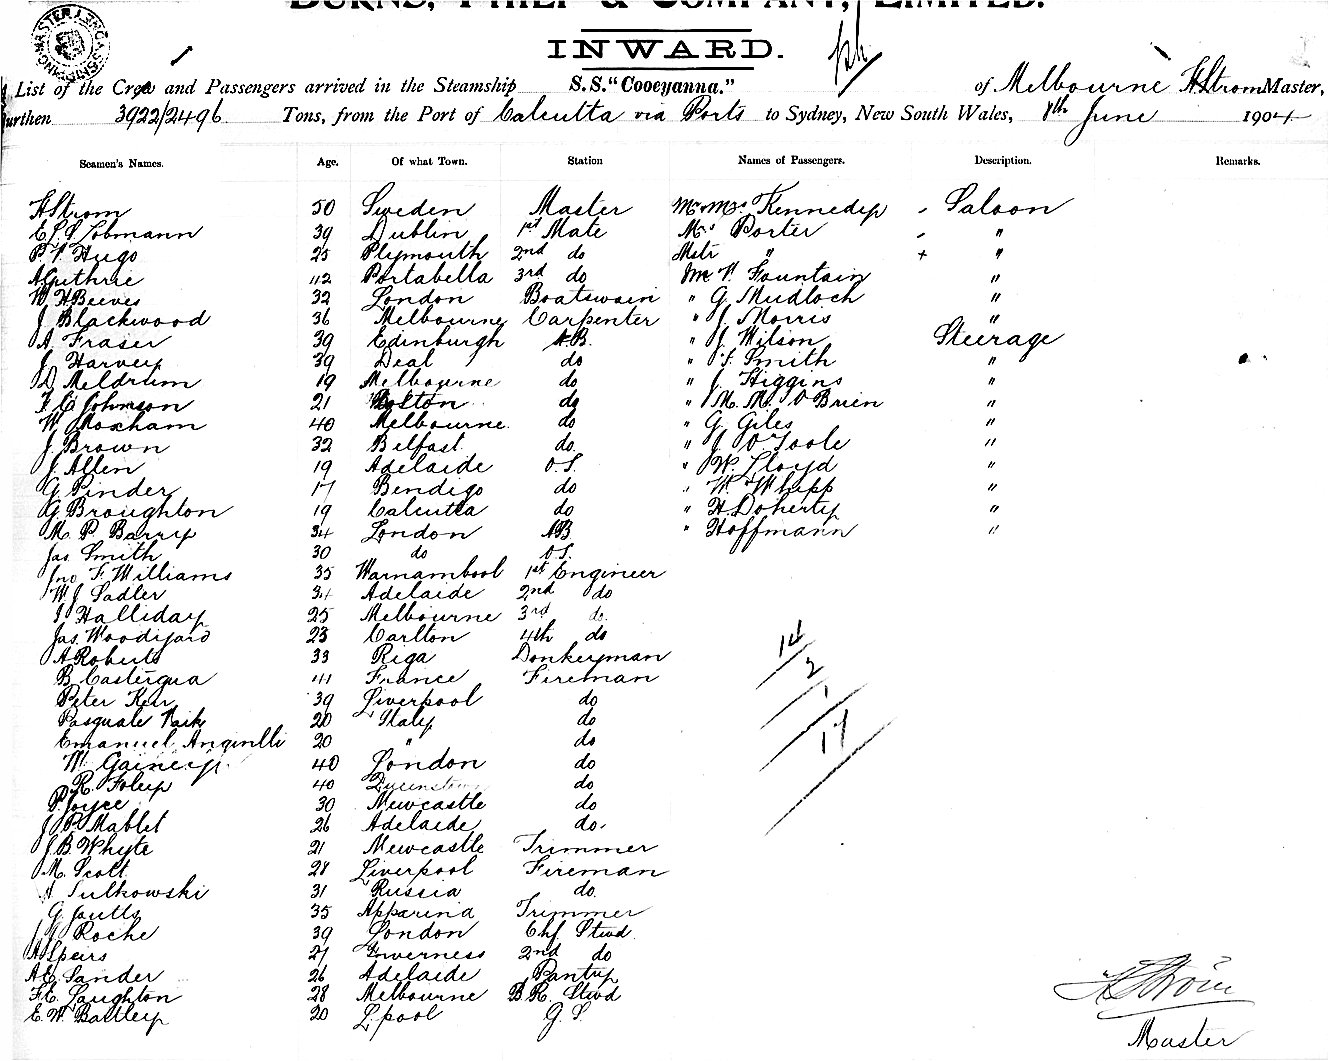 BURNS, PHILP & COMPANY, LIMITED.
INWARD.
List of the Crew and Passengers arrived in the Steamship S.S. "Cooeyanna." of Melbourne A Strom Master,
Burthen 3922/2496 Tons, from the Port of Calcutta via Ports to Sydney, New South Wales, 8th June 1904
Seamen's Names. Age. Of what Town. Station Names of Passengers. Description. Remarks.
A Strom 50 Sweden Master Mr & Mrs Kennedy Saloon
39 Dublin 1st Mate Mrs Porter "
Hugo 25 Plymouth 2nd do Mstr " + "
A Guthrie 42 Portabella 3rd do Mr Fountain "
W H Beeves 32 London Boatswain " G Mudloch "
J Blackwood 36 Melbourne Carpenter " J Morris "
A. Fraser 39 Edinburgh A.B. " J. Wilson Steerage
J Harvey 39 Deal do " Smith "
D Meldrum 19 Melbourne do " J. Higgins "
F. C Johnson 21 do " M. Mc O'Brien "
W Moxham 40 Melbourne do " G. Giles "
J. Brown 32 Belfast do " J O'Toole "
J Allen 19 Adelaide O.S. " W. Lloyd "
G. Pinder 17 Bendigo do " W Whipp "
G. Broughton 19 Calcutta do " H Doherty "
M. P. Barry 34 London AB " Hoffmann "
Jas Smith 30 do O.S.
Jno F. Williams 35 Warnambool 1st Engineer
W. J. Sadler 31 Adelaide 2nd do
J Halliday 25 Melbourne 3rd do
Jas. Woodyard 23 Carlton 4th do
14
A Roberts 33 Riga Donkeyman
2
B. Castergua 41 France Fireman
1
Peter Kerr 39 Liverpool do
Pasquale 20 Italy do
17
Emanuel 20 " do
M. Gainey 40 London do
R. Foley 40 Queenstown do
P. Joyce 30 Newcastle do
J. P. Mablet 26 Adelaide do.
J. B. Whyte 21 Newcastle Trimmer
M. Scott 28 Liverpool Fireman
A Sulkowski 31 Russia do.
G. Jutts 35 Apparina Trimmer
J J Roche 39 London Chf Stwd.
A Speirs 27 Inverness 2nd do
A. E. Sander 26 Adelaide Pantry
F. E. Laughton 28 Melbourne B.R. Stwd
A Ström
E. W. Bartley 20 L'pool G. S.
Master